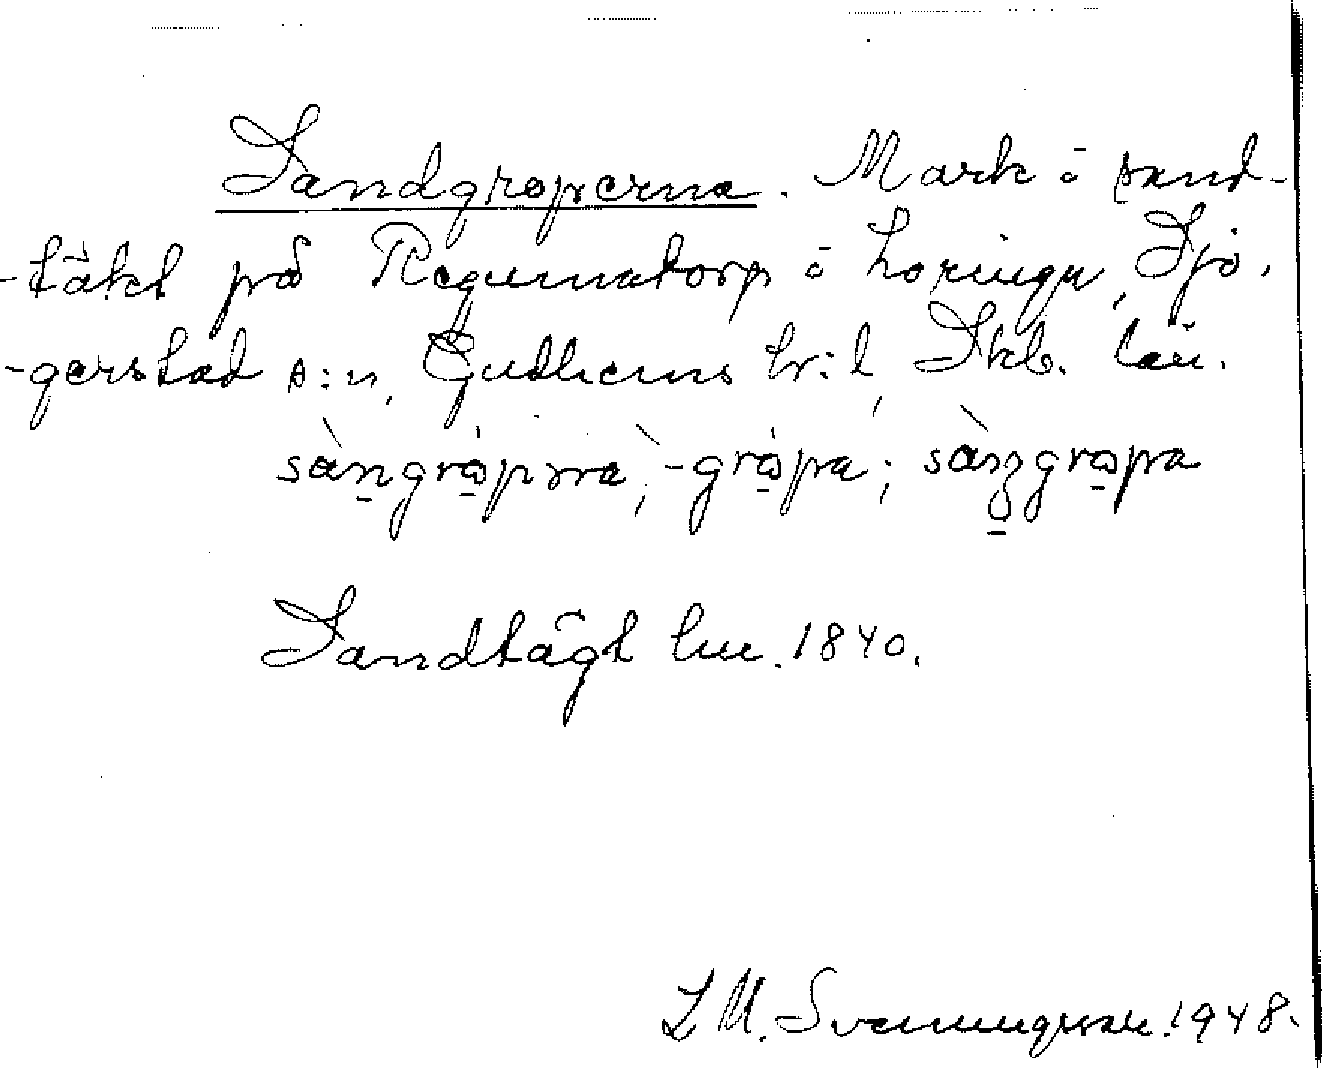 Sandgroperna. Mark o sand-
-täkt på Regumatorp i Lovinga, Sjö-
-gerstad s:n, Gudhems hr:d, Skb. län.
sàngròpıra, -gròpa; sàngropa
Sandtägt lm. 1840.
L M. Svenungsson. 1948.